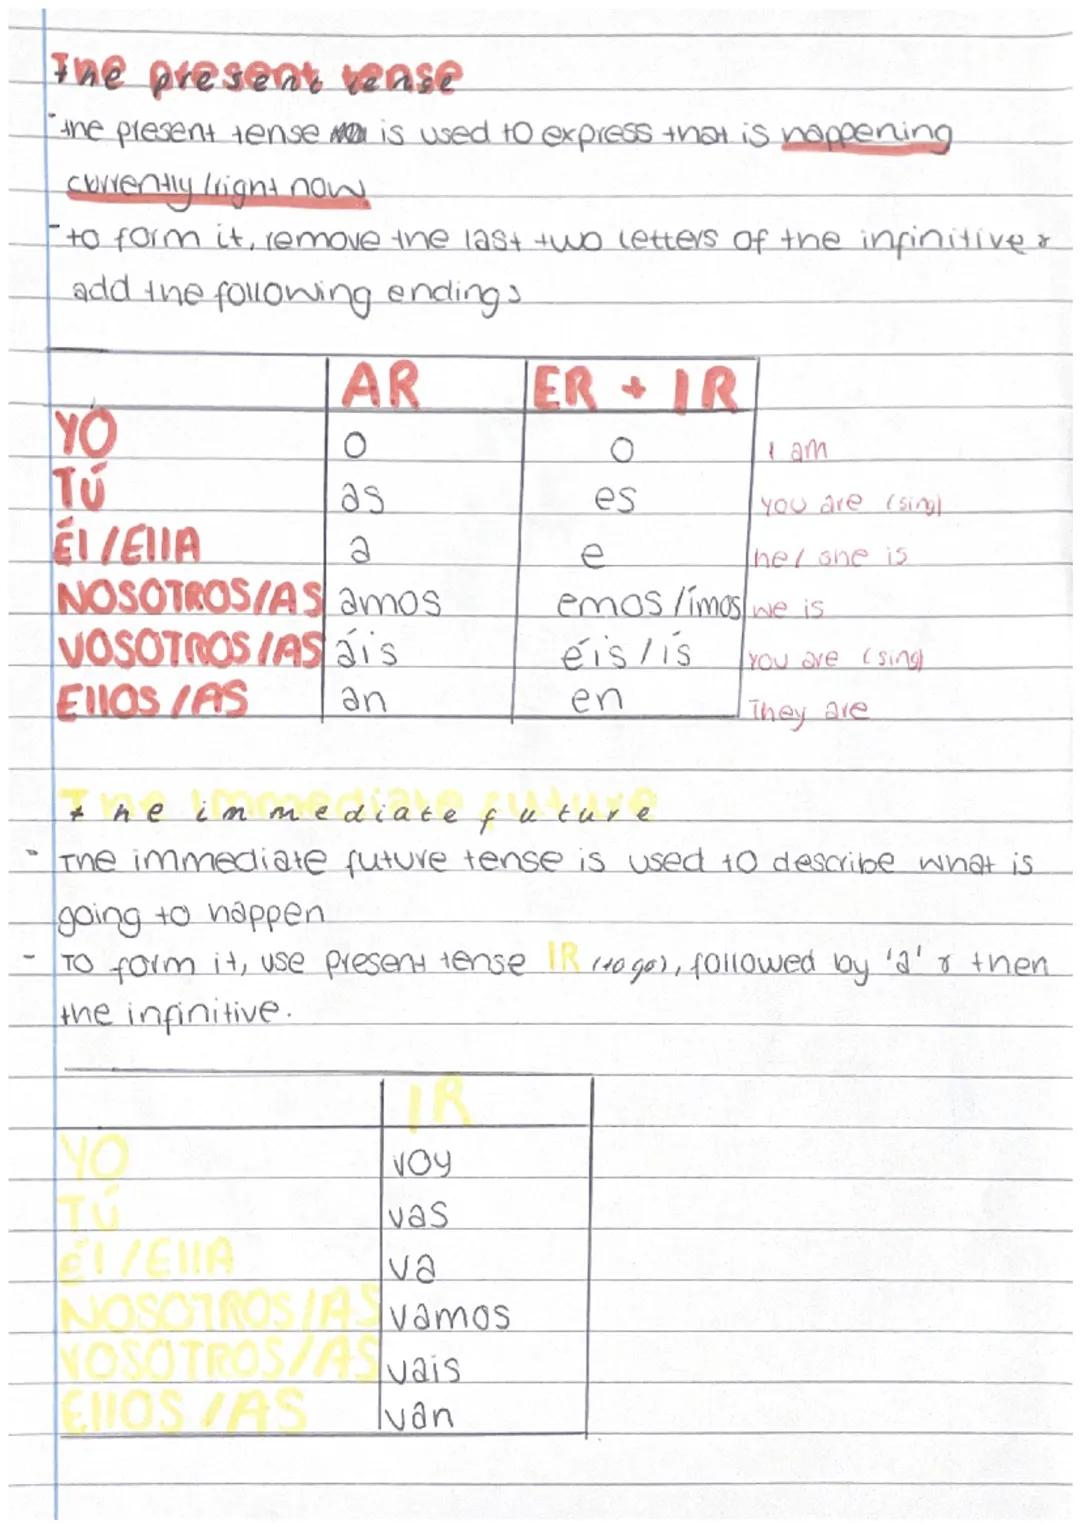 The present tense
-the present tense is used to express that is happening
currently/right now
-to form it, remove the last two letters of the infinitive &
add the following endings
AR ER + IR
YO o o I am
TÚ as es you are (sing)
ÉL/EllA a e he/ she is
NOSOTROS/AS amos emos/imos we is
VOSOTROS/AS áis éis/ís you are (sing)
EllOS/AS an en They are
The immediate future
- The immediate future tense is used to describe what is
going to happen
- To form it, use present tense IR (to go), followed by 'a' & then
the infinitive.
IR
YO voy
TÚ vas
Él/EllA va
NOSOTROS/AS vamos
VOSOTROS/AS vais
EllOS/AS van